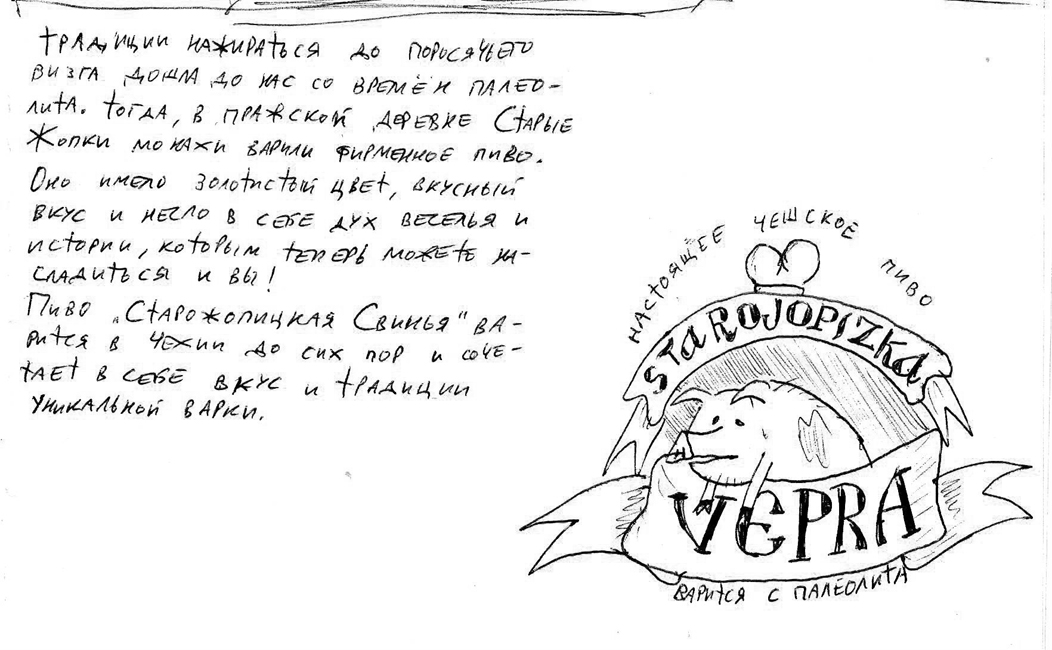 Традиции нажираться до поросячьего
визга дошла до нас со времён палео-
лита. Тогда, в пражской деревне Старые
Жопки монахи варили фирменное пиво.
Оно имело золотистый цвет, вкусный
вкус и несло в себе дух веселья и
истории, которым теперь можете на-
сладиться и вы!
Пиво „Старожопицкая Свинья" ва-
рится в Чехии до сих пор и соче-
тает в себе вкус и традиции
уникальной варки.
настоящее чешское пиво
STAROJOPIZKA
VEPRA
варится с палеолита